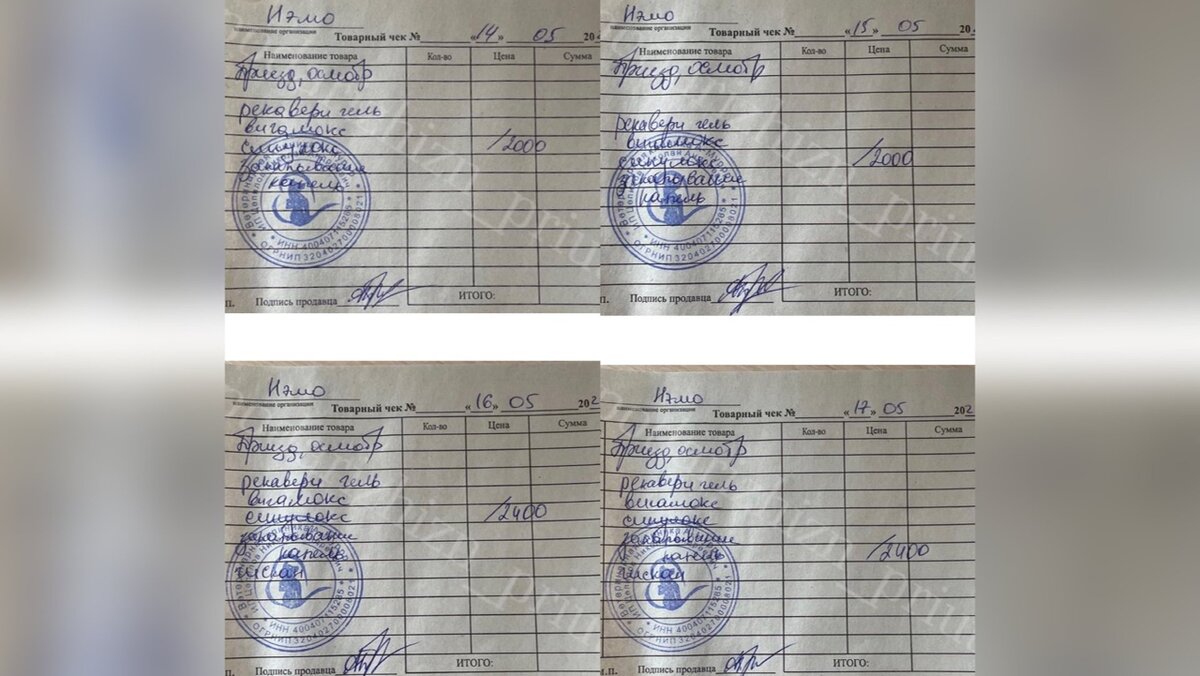 Нэмо
наименование организации
Товарный чек № «14» 05 20
Наименование товара Кол-во Цена Сумма
Приезд, осмотр
рекавери гель
вигамокс
синулокс /2000
закапывание
капель
ИНН 400407115285
ОГРНИП 320402700008021
Подпись продавца ИТОГО:
Нэмо
наименование организации
Товарный чек № «15» 05 20
Наименование товара Кол-во Цена Сумма
Приезд, осмотр
рекавери гель
вигамокс
синулокс /2000
закапывание
капель
ИНН 400407115285
ОГРНИП 320402700008021
Подпись продавца ИТОГО:
Нэмо
наименование организации
Товарный чек № «16» 05 202
Наименование товара Кол-во Цена Сумма
Приезд, осмотр
рекавери гель
вигамокс
синулокс /2400
закапывание
капель
ИНН 400407115285
ОГРНИП 320402700008021
П. Подпись продавца ИТОГО:
Нэмо
наименование организации
Товарный чек № «17» 05 202
Наименование товара Кол-во Цена Сумма
Приезд, осмотр
рекавери гель
вигамокс
синулокс
закапывание
капель /2400
ИНН 400407115285
ОГРНИП 320402700008021
М.П. Подпись продавца ИТОГО: